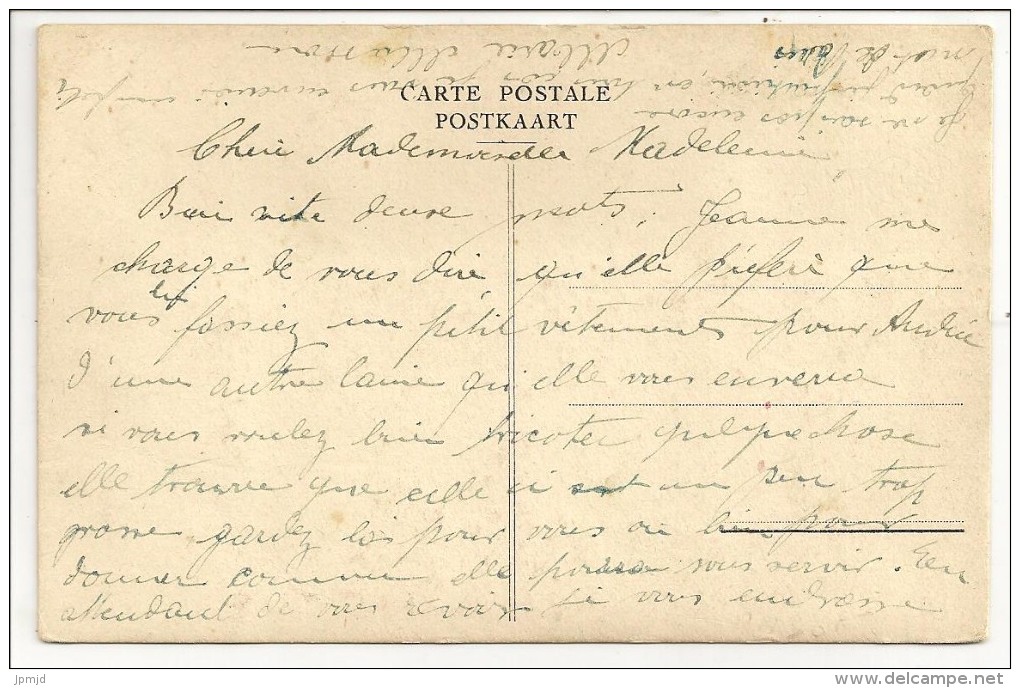 CARTE POSTALE
POSTKAART
Cheri Mademoiselle Madeleine
Bien vite deuxe mots, Jeanne me
charge de vous dire qu'elle préfère que
vous lui fassiez un pétit vêtements pour Andrée
d'une autre laine qu'elle vous enverra
si vous voulez bien tricoter quelque chose
elle trouve que celle ci est un peu trop
grosse gardez la pour vous ou bien pour
donner comme elle pourra vous servir. En
attendant de vous revoir je vous embrasse
Je ne sais pas encore
en tous cas je vous enverrai un petit
mot de
Marie
jpmjd
www.delcampe.net